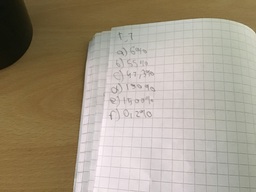 1.7
a) 5%
b) 55%
c) 47,3%
d) 190%
e) 1500%
f) 0,2%